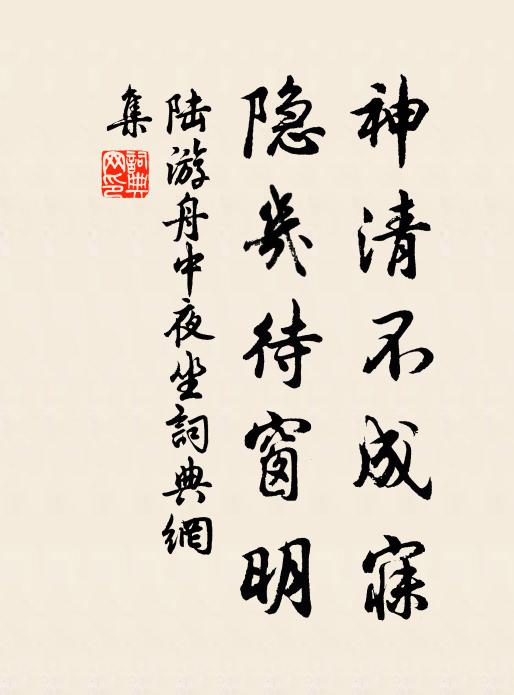 神清不成寐
隐几待窗明
陆游舟中夜坐詞典網
集
詞典網印